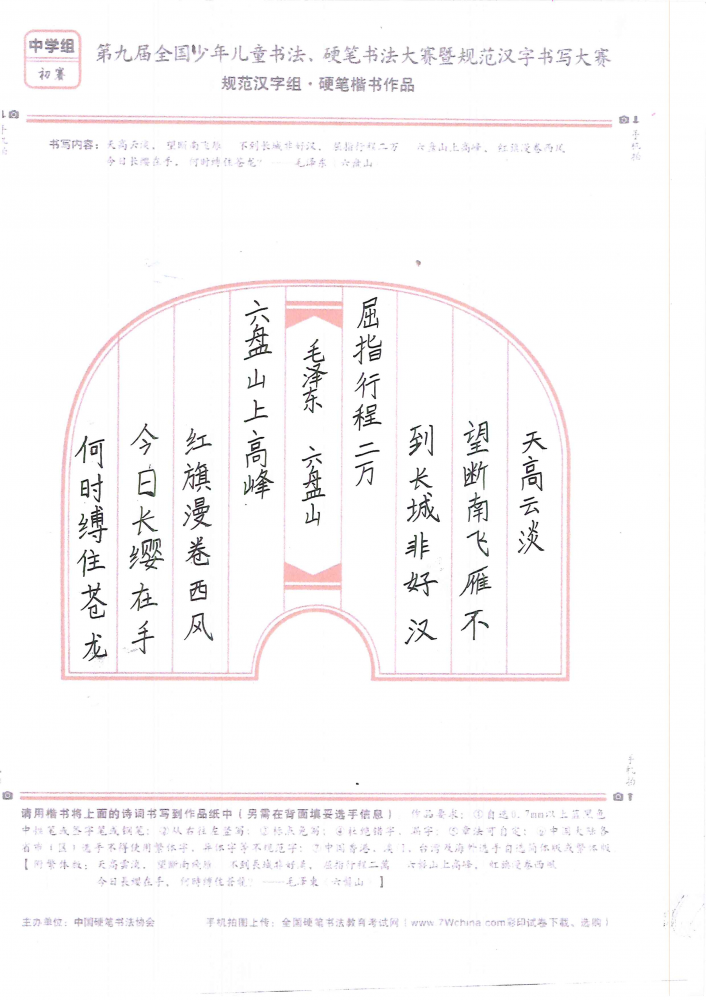 中学组
初赛
第九届全国少年儿童书法、硬笔书法大赛暨规范汉字书写大赛
规范汉字组·硬笔楷书作品
手机拍
书写内容：天高云淡，望断南飞雁 不到长城非好汉，屈指行程二万 六盘山上高峰，红旗漫卷西风
今日长缨在手，何时缚住苍龙？——毛泽东《六盘山》
天高云淡
望断南飞雁不
到长城非好汉
屈指行程二万
毛泽东 六盘山
六盘山上高峰
红旗漫卷西风
今日长缨在手
何时缚住苍龙
手机拍
请用楷书将上面的诗词书写到作品纸中（另需在背面填妥选手信息） 作品要求：①自选0.7mm以上蓝黑色
中性笔或签字笔或钢笔；②从右往左竖写；③标点免写；④杜绝错字、漏字；⑤章法可自定；⑥中国大陆各
省市（区）选手不得使用繁体字、异体字等不规范字；⑦中国香港、澳门、台湾及海外选手自选简体版或繁体版
【附繁体版：天高雲淡，望斷南飛雁 不到長城非好漢，屈指行程二萬 六盤山上高峰，紅旗漫卷西風
今日長纓在手，何時縛住蒼龍？——毛澤東《六盤山》】
主办单位：中国硬笔书法协会
手机拍图上传：全国硬笔书法教育考试网（www.7Wchina.com彩印试卷下载、选购）